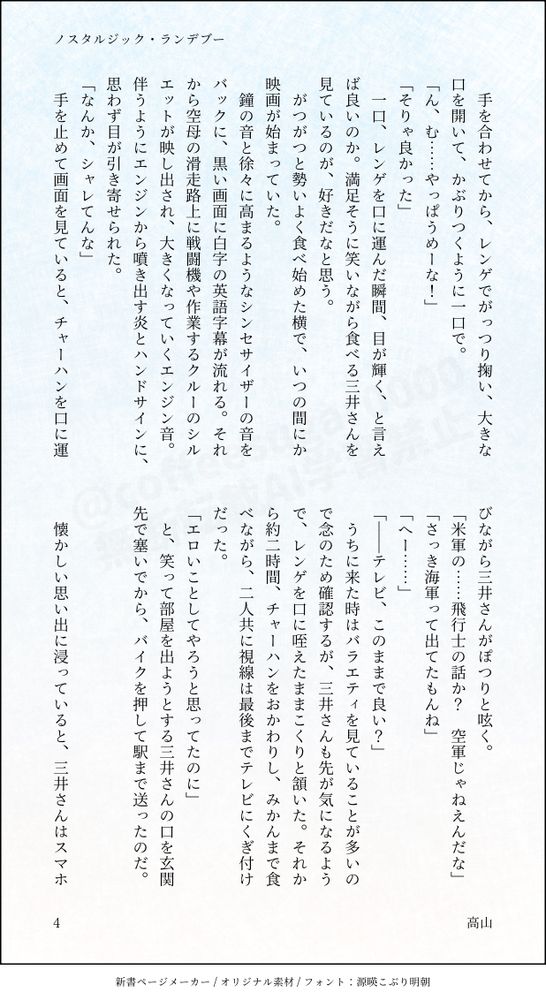 ノスタルジック・ランデブー
手を合わせてから、レンゲでがっつり掬い、大きな
口を開いて、かぶりつくように一口で。
「ん、む……やっぱうめーな！」
「そりゃ良かった」
一口、レンゲを口に運んだ瞬間、目が輝く、と言え
ば良いのか。満足そうに笑いながら食べる三井さんを
見ているのが、好きだなと思う。
がつがつと勢いよく食べ始めた横で、いつの間にか
映画が始まっていた。
鐘の音と徐々に高まるようなシンセサイザーの音を
バックに、黒い画面に白字の英語字幕が流れる。それ
から空母の滑走路上に戦闘機や作業するクルーのシル
エットが映し出され、大きくなっていくエンジン音。
伴うようにエンジンから噴き出す炎とハンドサインに、
思わず目が引き寄せられた。
「なんか、シャレてんな」
手を止めて画面を見ていると、チャーハンを口に運
びながら三井さんがぽつりと呟く。
「米軍の……飛行士の話か？　空軍じゃねえんだな」
「さっき海軍って出てたもんね」
「へー……」
「――テレビ、このままで良い？」
うちに来た時はバラエティを見ていることが多いの
で念のため確認するが、三井さんも先が気になるよう
で、レンゲを口に咥えたままこくりと頷いた。それか
ら約二時間、チャーハンをおかわりし、みかんまで食
べながら、二人共に視線は最後までテレビにくぎ付け
だった。
「エロいことしてやろうと思ってたのに」
と、笑って部屋を出ようとする三井さんの口を玄関
先で塞いでから、バイクを押して駅まで送ったのだ。
懐かしい思い出に浸っていると、三井さんはスマホ
4
高山
新書ページメーカー / オリジナル素材 / フォント：源暎こぶり明朝